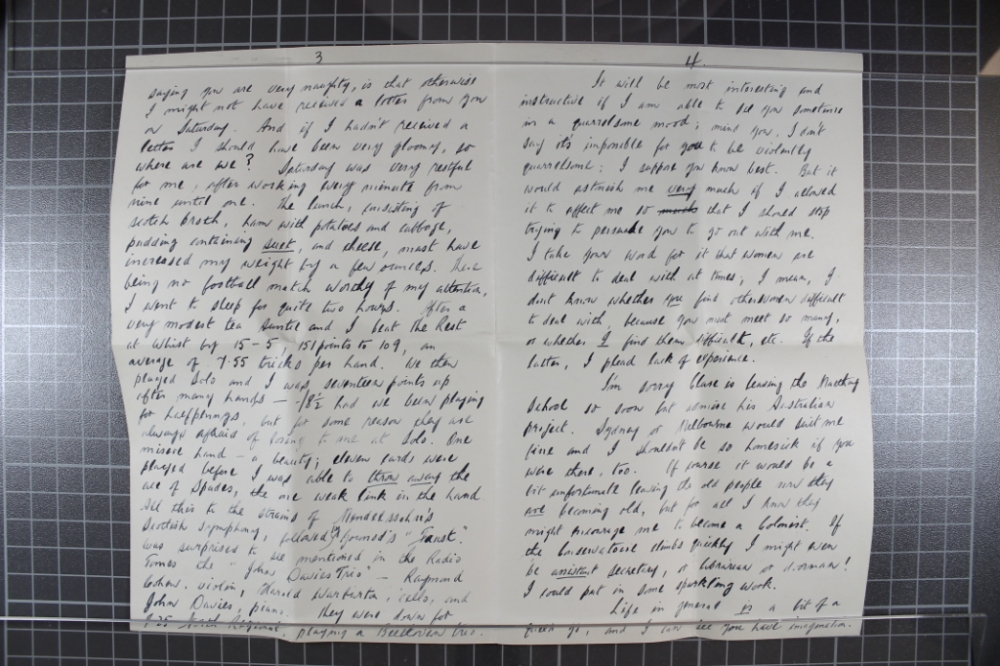 3
saying you are very naughty, is that otherwise
I might not have received a letter from you
on Saturday. And if I hadn't received a
letter I should have been very gloomy, so
where are we? Saturday was very restful
for me, after working every minute from
nine until one. The lunch, consisting of
scotch broth, ham with potatoes and cabbage,
pudding containing suet, and cheese, must have
increased my weight by a few ounces. There
being no football match worthy of my attention,
I went to sleep for quite two hours. After a
very modest tea Auntie and I beat the Rest
at Whist by 15-5, 151 points to 109, an
average of 7.55 tricks per hand. We then
played Solo and I was seventeen points up
after many hands — 1/8½ had we been playing
for halfpennys, but for some reason they are
always afraid of losing to me at Solo. One
misère hand - a beauty; eleven cards were
played before I was able to throw away the
ace of Spades, the one weak link in the hand.
All this to the strains of Mendelssohn's
Scottish Symphony, followed by Gounod's "Faust".
was surprised to see mentioned in the Radio
Times the "John Davies Trio" — Raymond
Cohen, violin, Harold Warburton, cello, and
John Davies, piano. They were down for
North Regional, playing a Beethoven trio.
4.
It will be most interesting and
instructive if I am able to see you sometime
in a quarrelsome mood; mind you, I don't
say it's impossible for you to be violently
quarrelsome; I suppose you know best. But it
would astonish me very much if I allowed
it to affect me so much that I should stop
trying to persuade you to go out with me.
I take your word for it that women are
difficult to deal with at times; I mean, I
don't know whether you find other women difficult
to deal with, because you must meet so many,
or whether I find them difficult, etc. If the
latter, I plead lack of experience.
I'm sorry is leaving the
School so soon but admire his Australian
project. Sydney or Melbourne would suit me
fine and I shouldn't be so homesick if you
were there, too. Of course it would be a
bit unfortunate leaving the old people now they
are becoming old, but for all I know they
might encourage me to become a Colonist. If
the Conservatoire climbs quickly I might even
be assistant secretary, or librarian or doorman!
I could put in some sparkling work.
Life in general is a bit of a
go, and I can see you have imagination.